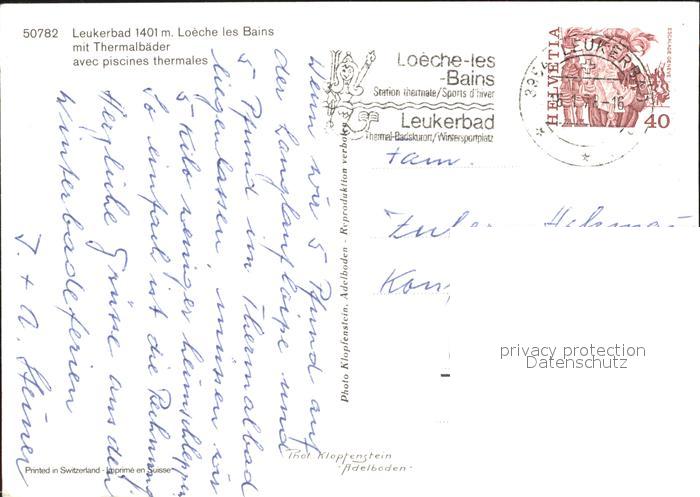 50782 Leukerbad 1401 m. Loèche les Bains
mit Thermalbäder
avec piscines thermales
Wenn wir 5 Pfund auf
der Langlaufloipe und
5 Pfund im Thermalbad
liegenlassen, müssen wir
5 Kilo weniger heimschleppen
So einfach ist die Rechnung
Herzliche Grüsse aus den
Winterbadeferien
J. + A. Steiner
Printed in Switzerland - Imprimé en Suisse
Photo Klopfenstein, Adelboden - Reproduktion verboten
Loèche-les
-Bains
Station thermale/Sports d'hiver
Leukerbad
Thermal-Badekurort/Wintersportplatz
LEUKERBAD
HELVETIA
ESCALADE GENÈVE
40
Fam.
privacy protection
Datenschutz
Phot. Klopfenstein
"Adelboden"